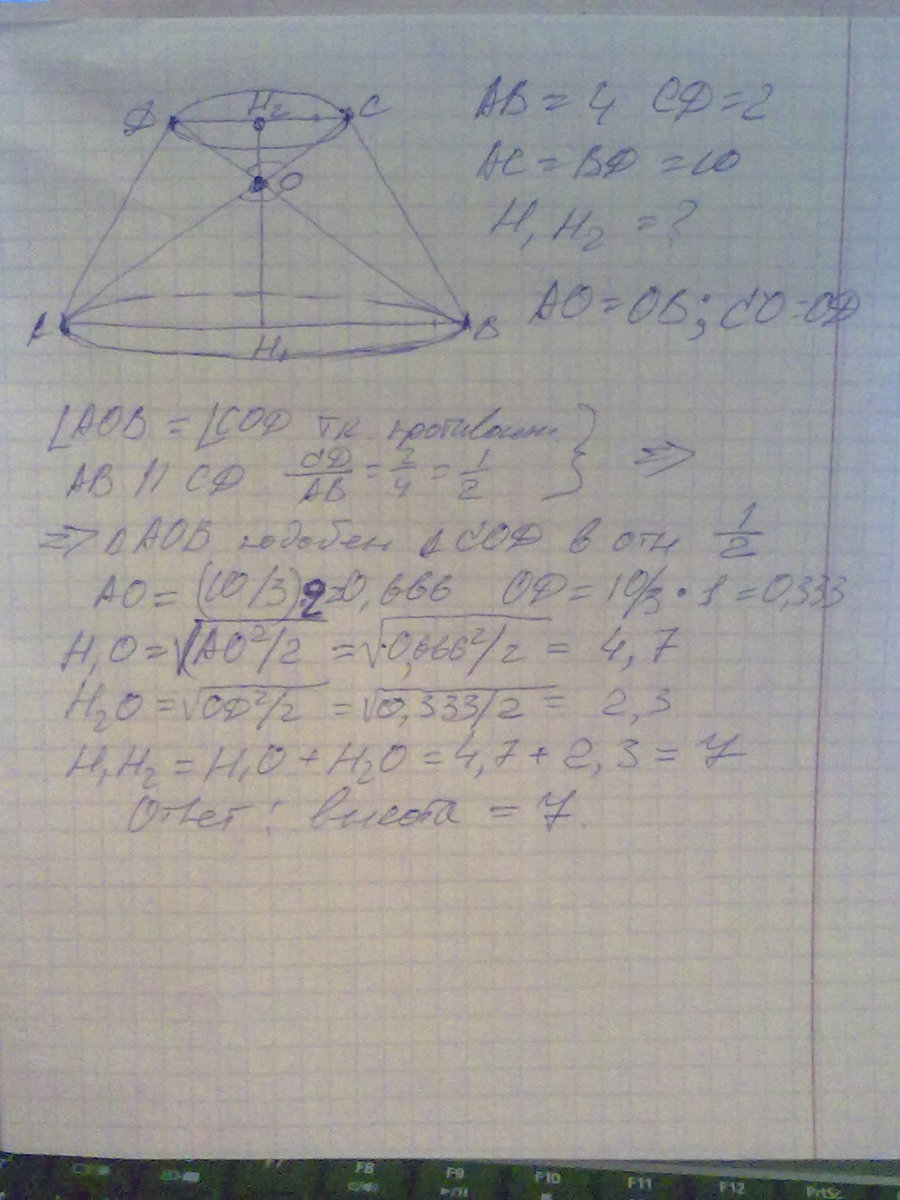 D H₂ C
O
A H₁ B
AB = 4 CD = 2
AC = BD = 10
H₁H₂ = ?
AO = OB; CO = OD
∠AOB = ∠COD т.к.
AB || CD CD/AB = 2/4 = 1/2 } =>
=> △AOB подобен △COD в отн 1/2
AO = (10/3)·2 = 0,666 OD = 10/3 · 1 = 0,333
H₁O = √(AO²/2) = √(0,666²/2) = 4,7
H₂O = √(OD²/2) = √(0,333/2) = 2,3
H₁H₂ = H₁O + H₂O = 4,7 + 2,3 = 7
Ответ: высота = 7
F7 F8 F9 F10 F11 F12 PrtSc